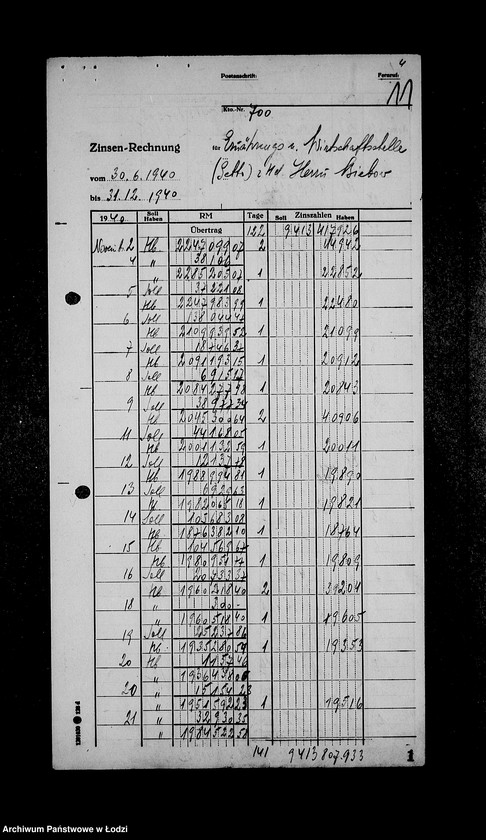 4
Postanschrift:
Fernruf:
11
Kto.-Nr. 700
Zinsen-Rechnung
für Ernährungs u. Wirtschaftsstelle
(Getto) z Hd Herrn Biebow
vom 30.6.1940
bis 31.12.1940
1940 Soll Haben RM Tage Soll Zinszahlen Haben
Übertrag 122 9413 417926
Novemb. 2 Hb 2247099 07 2 44942
4 " 38104
" 2285203 07 1 22852
5 Soll 37221 08
Hb 2247983 99 1 22480
6 Soll 138044 47
Hb 2109939 52 1 21099
7 Soll 18746 37
Hb 2091193 15 1 20912
8 Soll 6915 17
Hb 2084277 98 1 20843
9 Soll 38977 34
Hb 2045300 64 2 40906
11 Soll 44168 05
Hb 2001132 59 1 20011
12 Soll 12137 78
Hb 1988994 81 1 19890
13 Soll 6929 63
Hb 1982065 18 1 19821
14 Soll 105683 08
Hb 1876382 10 1 18764
15 Hb 104569 67
Hb 1980951 77 1 19809
16 Soll 20733 37
Hb 1960218 40 2 39204
18 " 300 -
" 1960518 40 1 19605
19 Soll 25237 86
Hb 1935280 54 1 19353
20 Hb 1157 46
" 1936438 00
20 " 15154 23
" 1951592 23 1 19516
21 " 32930 35
" 1984522 58
141 9413 807.933
1
Archiwum Państwowe w Łodzi